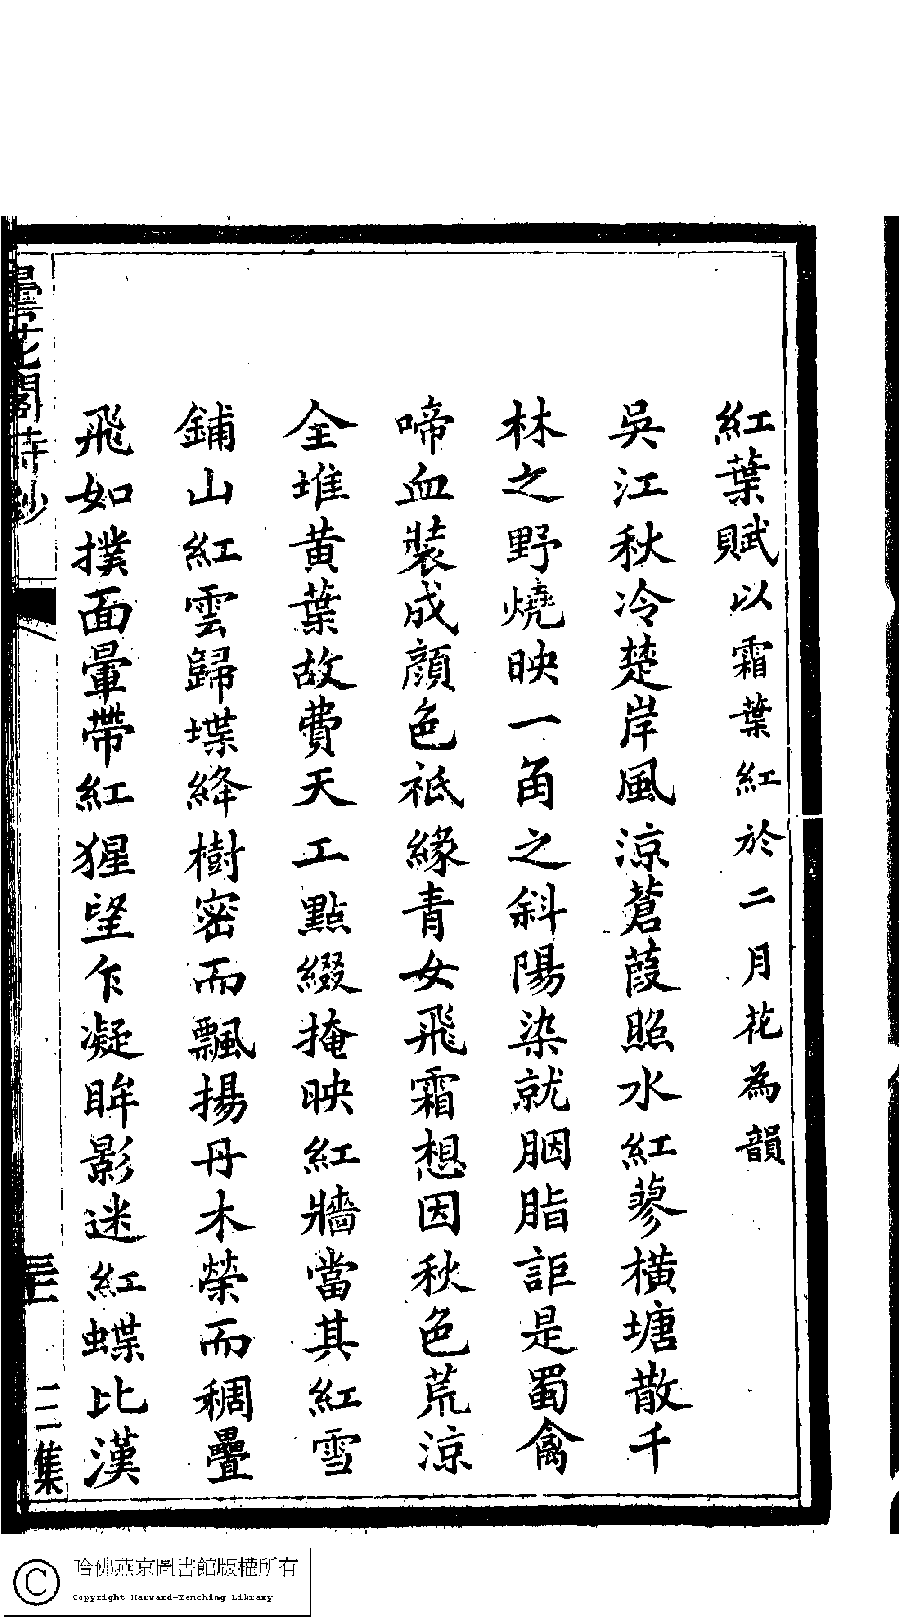 紅葉賦以霜葉紅於二月花為韻
吳江秋冷楚岸風涼蒼葭照水紅蓼橫塘散千
林之野燒映一角之斜陽染就胭脂詎是蜀禽
啼血裝成顏色祗緣青女飛霜想因秋色荒涼
全堆黃葉故費天工點綴掩映紅牆當其紅雪
鋪山紅雲歸堞絳樹密而飄揚丹木榮而稠疊
飛如撲面暈帶紅猩望乍凝眸影迷紅蝶比漢
曇花閣詩鈔
二集
哈佛燕京圖書館版權所有
Copyright Harvard-Yenching Library